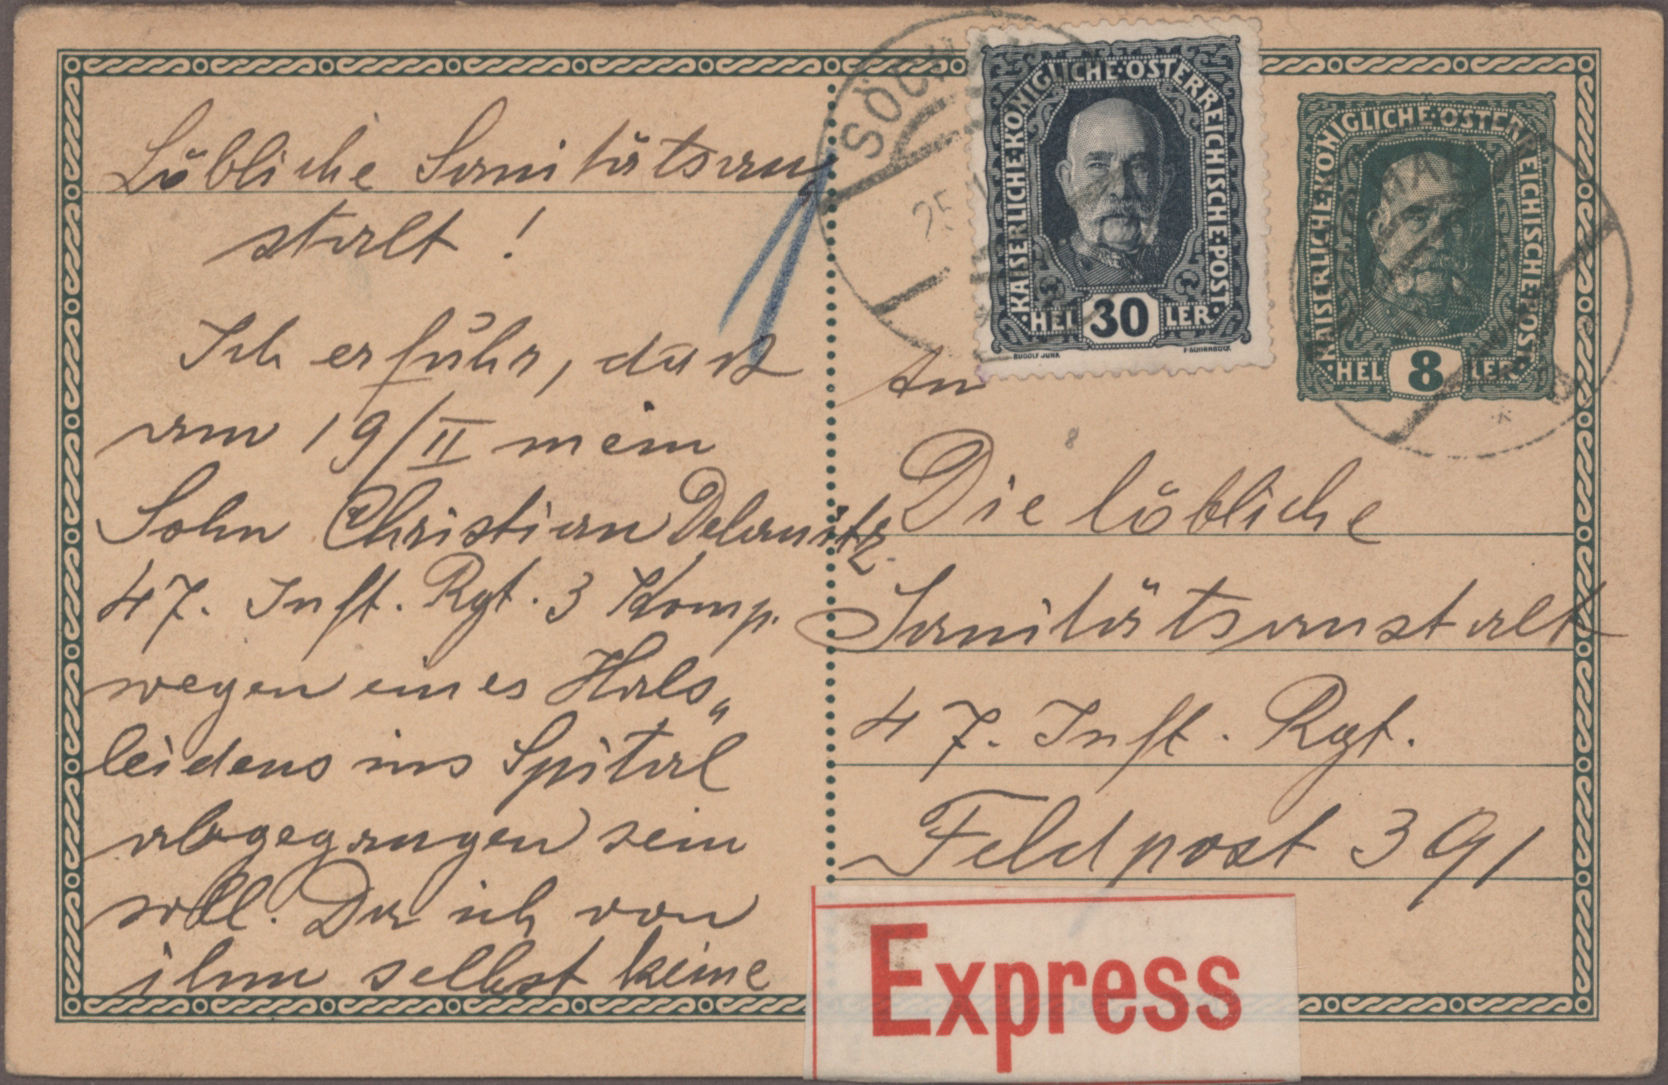 Löbliche Sanitätsan
stalt!
Ich erfuhr, dass
am 19/II mein
Sohn Christian
47. Inft. Rgt. 3 Komp.
wegen eines Hals„
leidens ins Spital
abgegangen sein
soll. Da ich von
ihm selbst keine
An
Die löbliche
Sanitätsanstalt
47. Inft. Rgt.
Feldpost 391
KAISERLICHE·KÖNIGLICHE·ÖSTERREICHISCHE·POST
HEL 30 LER
RUDOLF JUNK
F·SCHIRNBÖCK
KAISERLICHE·KÖNIGLICHE·ÖSTERREICHISCHE·POST
HEL 8 LER
25
Express